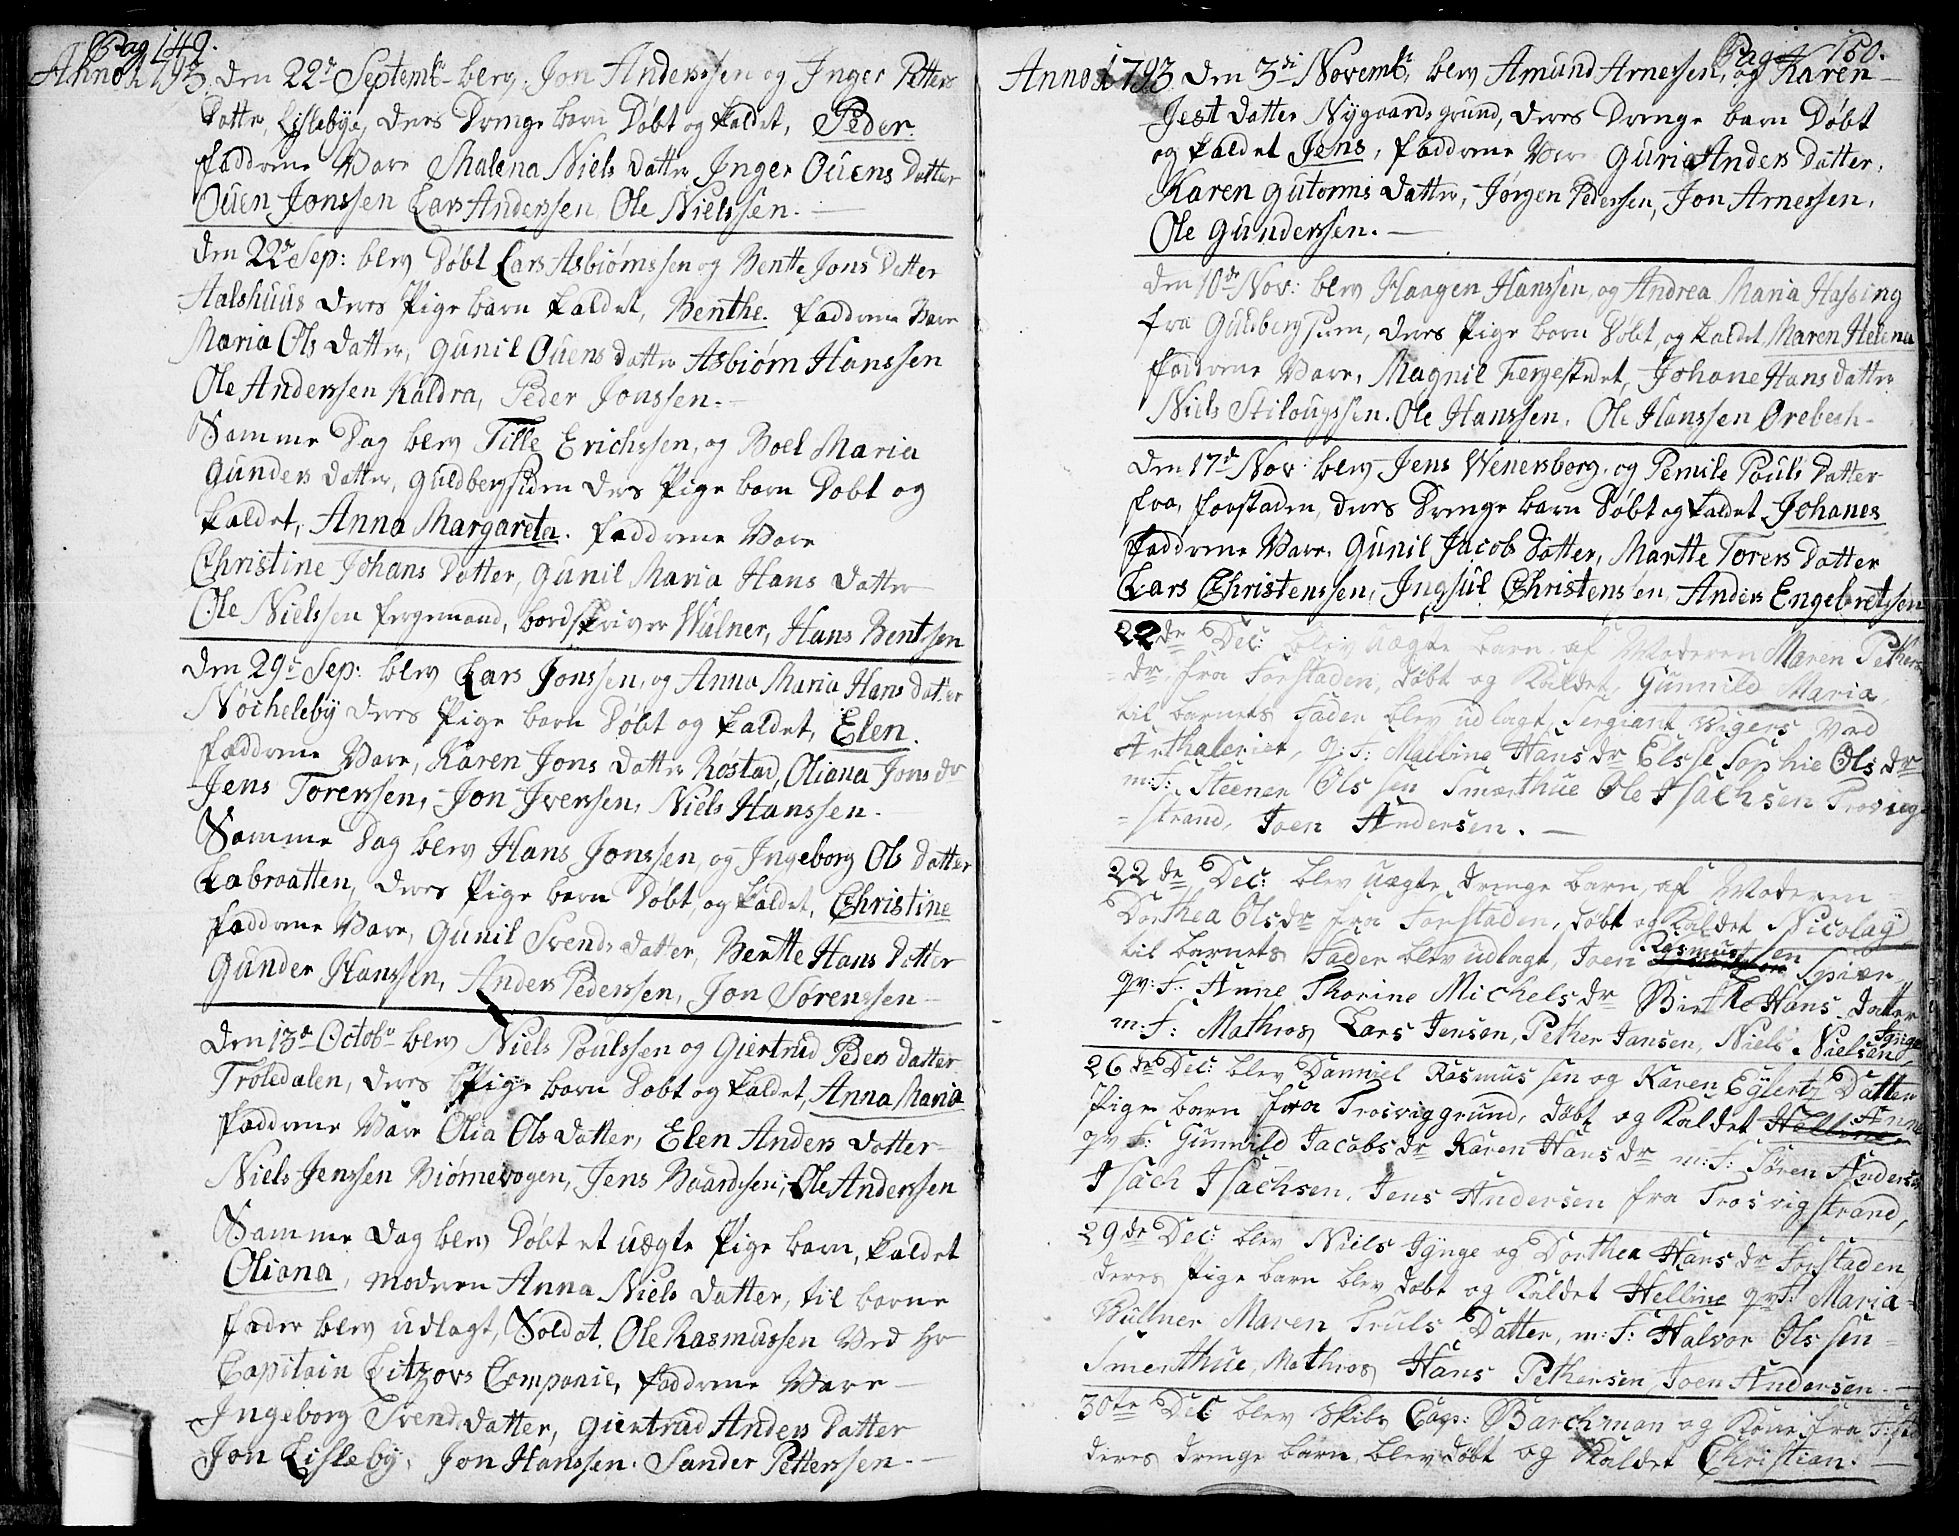 Pag 149.
Anno 1793. Den 22de Septembr blev Jon Anderssen og Inger Petters
Datter, Lislebye, deres Drenge barn Døbt og kaldet, Peder.
Faddrene Vare Malena Niels datter Inger Ouens Datter
Ouen Jonssen Lars Anderssen, Ole Nielssen.
Den 22de Sep: blev Døbt Lars Asbiørnssen og Bentte Jons Datter
Aalshuus deres Pige barn kaldet, Benthe. Faddrene Vare
Maria Ols datter, Gunil Ouens datter Asbiørn Hanssen
Ole Anderssen Kaldra, Peder Jonssen.
Samme Dag blev Tille Erichssen, og Boel Maria
Gunders datter, Guldbergsiden deres Pige barn Døbt og
kaldet, Anna Margareta. Faddrene Vare
Christine Johans Datter, Gunil Maria Hans datter
Ole Nielssen fergemand, bordskriver Wulner, Hans Bentssen
Den 29de Sep: blev Lars Jonssen, og Anna Maria Hans datter
Nocheleby deres Pige barn Døbt og kaldet, Elen.
Faddrene Vare, Karen Jons datter Rostad, Oliana Jons dr
Jens Torerssen, Jon Iverssen, Niels Hanssen.
Samme Dag blev Hans Jonssen, og Ingeborg Ols datter
Labraatten, deres Pige barn Døbt, og kaldet, Christine
Faddrene Vare, Gunil Svends datter, Bertte Hans Datter
Gunder Hanssen, Anders Pederssen, Jon Sørenssen
Den 13de Octobr blev Niels Poulssen og Giertrud Peders datter
Troledalen, deres Pige barn Døbt og kaldet, Anna Maria
Faddrene Vare Olia Ols datter, Elen Anders datter
Niels Jenssen Biørnevogen, Jens Baardssen, Ole Anderssen
Samme dag blev Døbt et uægte Pige barn, kaldet
Oliana, moderen Anna Niels datter, til barne
fader blev udlagt, Soldat Ole Rasmussen Ved hr
Capitain Litzovs Compagnie, Faddrene Vare
Ingeborg Svends datter, Giertrud Anders datter
Jon Lisleby, Jon Hanssen. Sander Petterssen.
Pag 150.
Anno 1793 den 3die Novembr blev Amund Arnessen, og Karen
Jest datter Nygaards grund, deres Drenge barn Døbt
og kaldet Jens, Faddrene Vare Guria Anders datter,
Karen Gutorms datter, Jørgen Pederssen, Jon Arnessen,
Ole Gunderssen.
Den 10de Nov: blev Haagen Hanssen, og Andrea Maria Hassing
fra Guldbergsiden, deres Pige barn Døbt, og kaldet Maren Helena
Faddrene Vare, Magnil Fergestedet, Johane Hans datter
Niels Stilougssen. Ole Hanssen, Ole Hanssen Ørebech
Den 17de Nov: blev Jens Wenersborg, og Pernile Pouls datter
fra, forstaden, deres Drenge barn Døbt og kaldet Johanes
Faddrene Vare, Gunil Jacobs datter, Martte Torers datter
Lars Christenssen, Ingsul Christenssen, Anders Engebretssen
22de Dec: blev uægte barn af Moderen Maren Pethers
dr fra Forstaden, døbt og Kaldet, Gunnild Maria,
til barnets Fader blev udlagt, Sergiant Wigers ved
Arthaleriet, q: F: Malline Hans dr Elsse Sophie Ols dr
m: F: Steener Olssen Smerthue Ole Isachsen Trosvig
strand, Joen Andersen.
22de Dec: blev uægte drenge barn, af Moderen
Dorthea Ols dr fra Forstaden, døbt og Kaldet Nicolay
til barnets Fader blev udlagt, Joen Rasmussen Spier,
qv: F: Anne Thorine Michels dr Birthe Hans datter
m: F: Mathros Lars Jensen, Pether Jansen, Niels Nielsen Iynge
26de Dec: blev Danniel Rasmussen og Karen Eylertz Datter
Pige barn fra Trosviggrund, døbt og Kaldet Helline Anne
qv F: Gunnild Jacobs dr Karen Hans dr m: F: Søren Andersen
Isach Isachsen, Jens Andersen fra Trosvigstrand,
29de Dec: blev Niels Iynge og Dorthea Hans dr Forstaden
deres Pige barn blev døbt og Kaldet Helline qv F: Maria
Wullner Maren Truls Datter, m: F: Halvor Olssen
Smerthue, Mathros Hans Pethersen, Joen Andersen.
30te Dec blev Skibs Cap: Barchman og Kone fra
deres drenge barn blev døbt og Kaldet Christian.